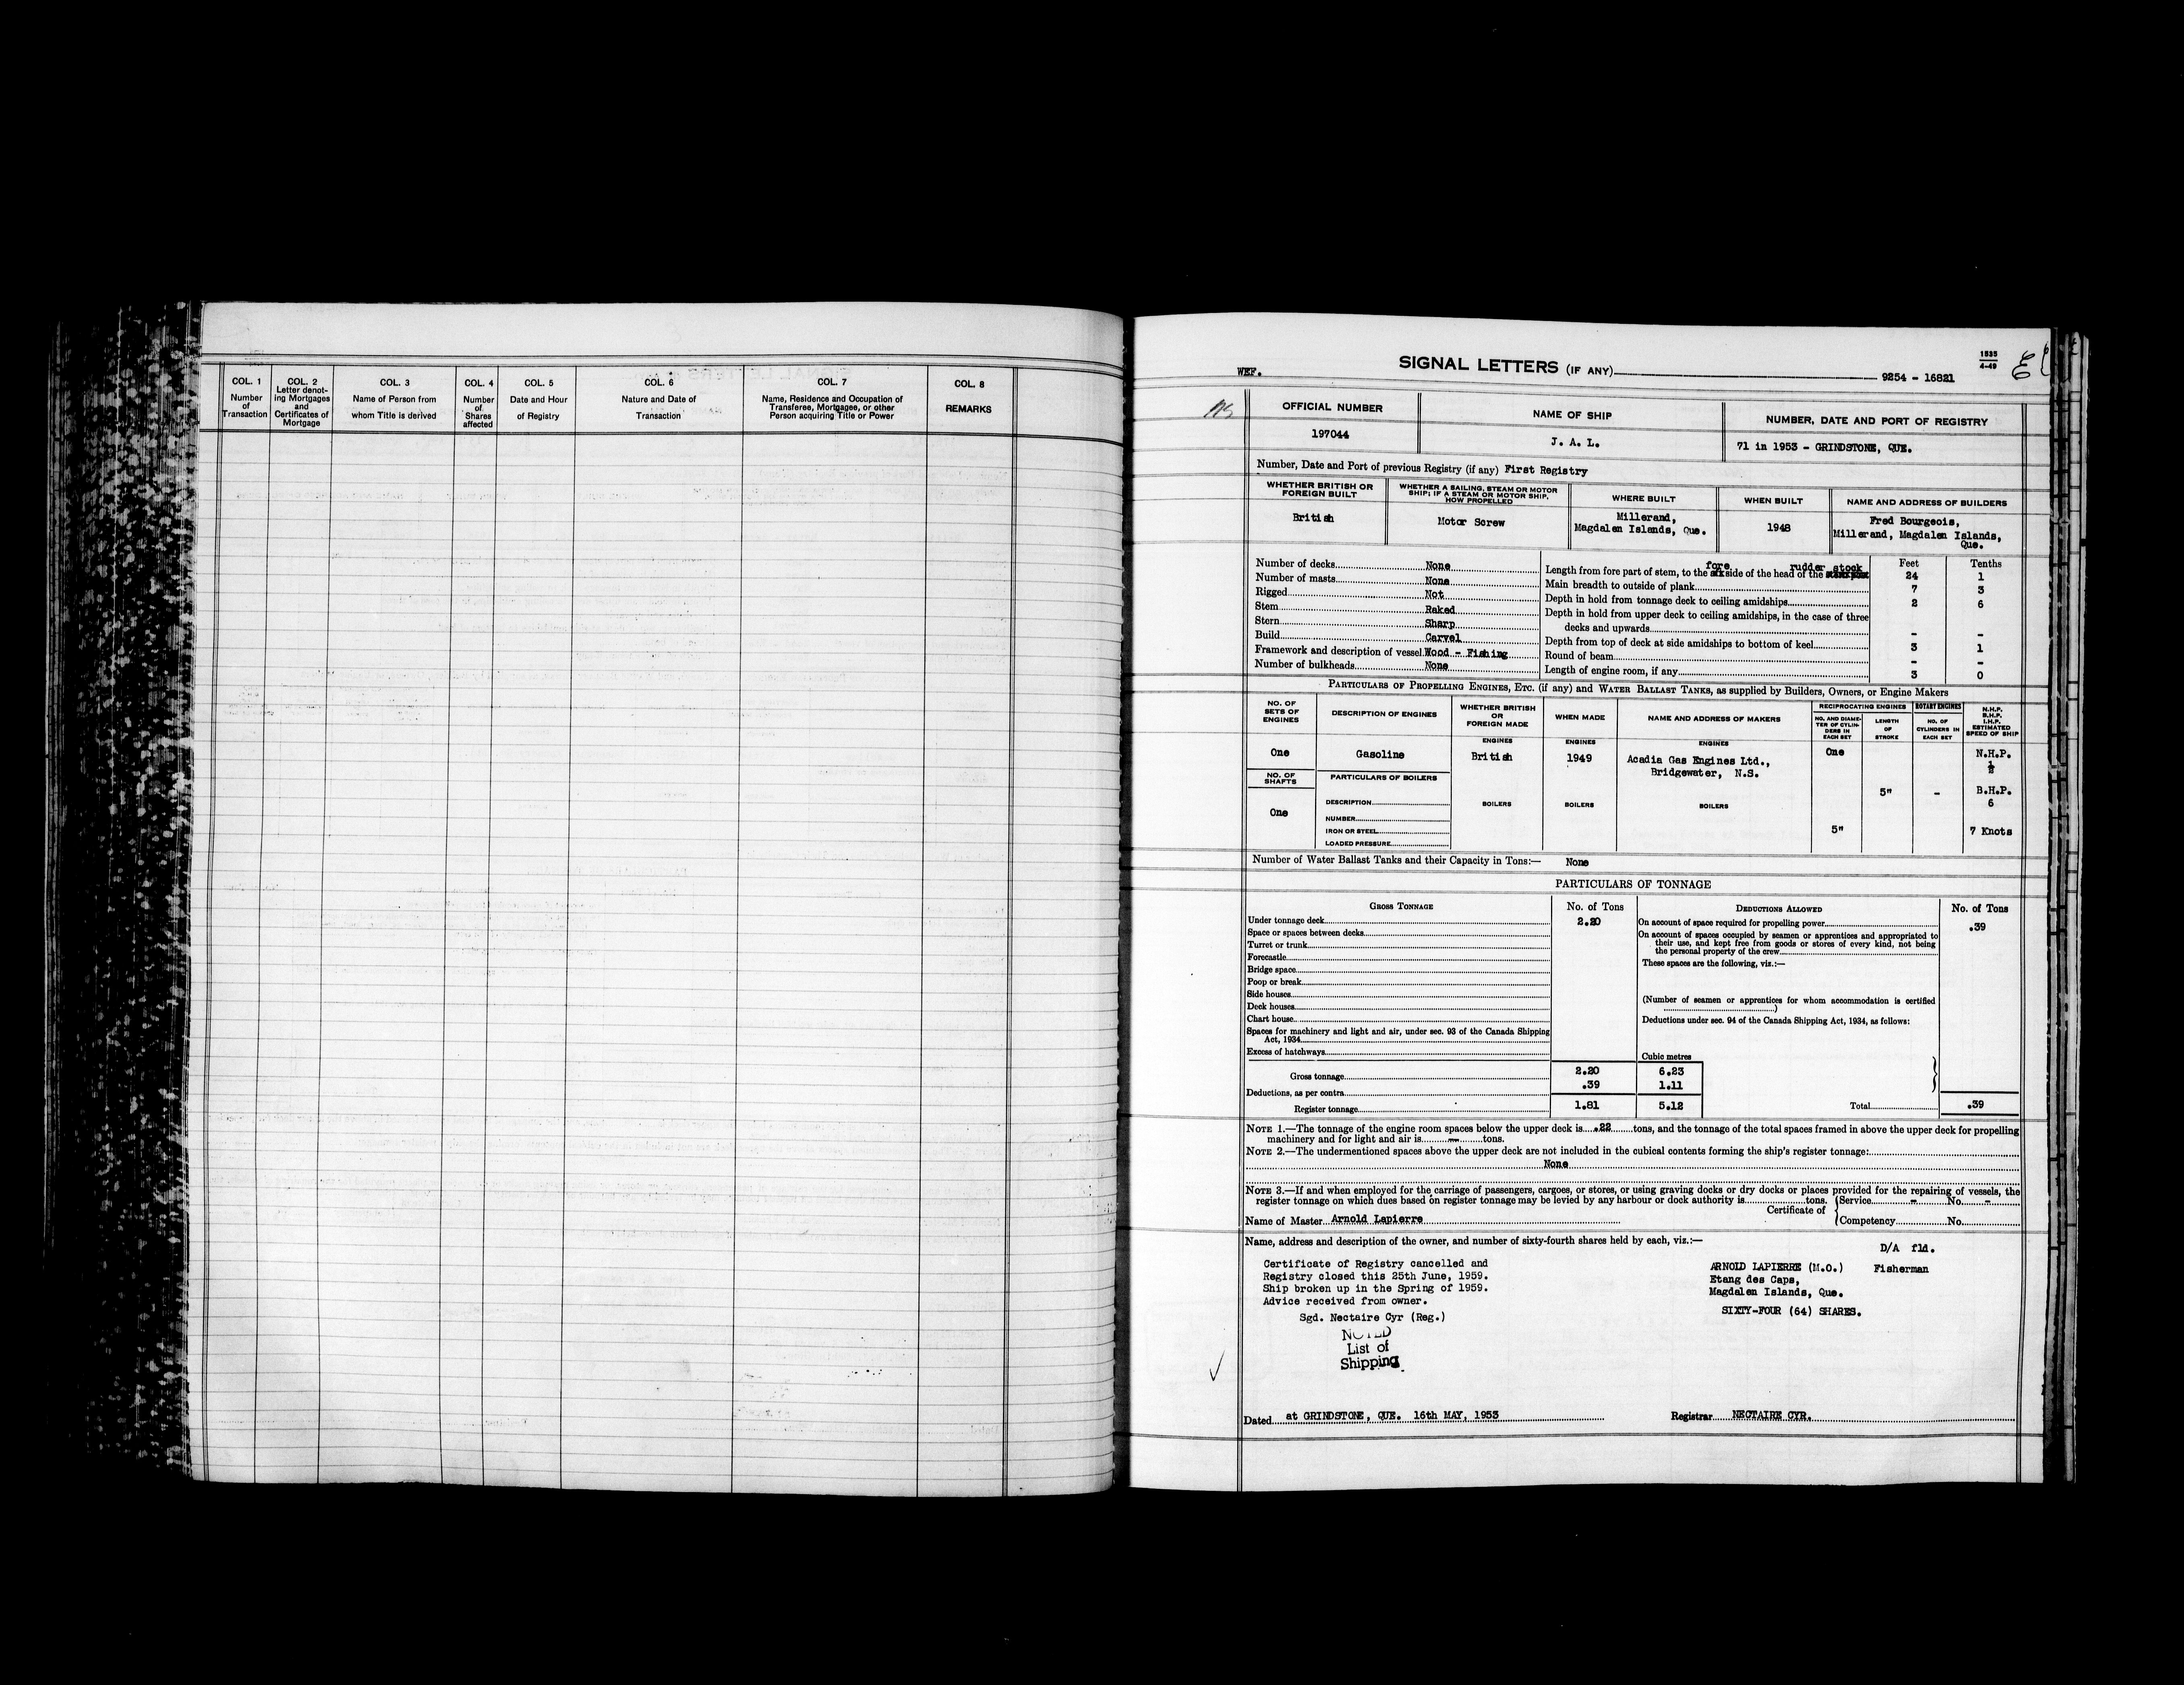 COL. 1
Number
of
Transaction
COL. 2
Letter denot-
ing Mortgages
and
Certificates of
Mortgage
COL. 3
Name of Person from
whom Title is derived
COL. 4
Number
of
Shares
affected
COL. 5
Date and Hour
of Registry
COL. 6
Nature and Date of
Transaction
COL. 7
Name, Residence and Occupation of
Transferee, Mortgagee, or other
Person acquiring Title or Power
COL. 8
REMARKS
1535
4-49
WEF.
SIGNAL LETTERS (IF ANY) 9254 - 16821
OFFICIAL NUMBER
197044
NAME OF SHIP
J. A. L.
NUMBER, DATE AND PORT OF REGISTRY
71 in 1953 - GRINDSTONE, QUE.
Number, Date and Port of previous Registry (if any) First Registry
WHETHER BRITISH OR
FOREIGN BUILT
British
WHETHER A SAILING, STEAM OR MOTOR
SHIP; IF A STEAM OR MOTOR SHIP,
HOW PROPELLED
Motor Screw
WHERE BUILT
Millerand,
Magdalen Islands, Que.
WHEN BUILT
1948
NAME AND ADDRESS OF BUILDERS
Fred Bourgeois,
Millerand, Magdalen Islands,
Que.
Number of decks None
Number of masts None
Rigged Not
Stem Raked
Stern Sharp
Build Carvel
Framework and description of vessel Wood - Fishing
Number of bulkheads None
Feet Tenths
fore rudder stock
Length from fore part of stem, to the side of the head of the 24 1
Main breadth to outside of plank 7 3
Depth in hold from tonnage deck to ceiling amidships 2 6
Depth in hold from upper deck to ceiling amidships, in the case of three
decks and upwards - -
Depth from top of deck at side amidships to bottom of keel 3 1
Round of beam - -
Length of engine room, if any 3 0
PARTICULARS OF PROPELLING ENGINES, ETC. (if any) and WATER BALLAST TANKS, as supplied by Builders, Owners, or Engine Makers
NO. OF
SETS OF
ENGINES
One
NO. OF
SHAFTS
One
DESCRIPTION OF ENGINES
Gasoline
PARTICULARS OF BOILERS
DESCRIPTION
NUMBER
IRON OR STEEL
LOADED PRESSURE
WHETHER BRITISH
OR
FOREIGN MADE
ENGINES
British
BOILERS
WHEN MADE
ENGINES
1949
BOILERS
NAME AND ADDRESS OF MAKERS
ENGINES
Acadia Gas Engines Ltd.,
Bridgewater, N.S.
BOILERS
RECIPROCATING ENGINES
NO. AND DIAME-
TER OF CYLIN-
DERS IN
EACH SET
One
5"
LENGTH
OF
STROKE
5"
ROTARY ENGINES
NO. OF
CYLINDERS IN
EACH SET
-
N.H.P.
B.H.P.
I.H.P.
ESTIMATED
SPEED OF SHIP
N.H.P.
½
B.H.P.
6
7 Knots
Number of Water Ballast Tanks and their Capacity in Tons:— None
PARTICULARS OF TONNAGE
GROSS TONNAGE No. of Tons
Under tonnage deck 2.20
Space or spaces between decks
Turret or trunk
Forecastle
Bridge space
Poop or break
Side houses
Deck houses
Chart house
Spaces for machinery and light and air, under sec. 93 of the Canada Shipping
Act, 1934
Excess of hatchways
Cubic metres
Gross tonnage 2.20 6.23
Deductions, as per contra .39 1.11
Register tonnage 1.81 5.12
DEDUCTIONS ALLOWED No. of Tons
On account of space required for propelling power .39
On account of spaces occupied by seamen or apprentices and appropriated to
their use, and kept free from goods or stores of every kind, not being
the personal property of the crew
These spaces are the following, viz.:—
(Number of seamen or apprentices for whom accommodation is certified
)
Deductions under sec. 94 of the Canada Shipping Act, 1934, as follows:
Total .39
NOTE 1.—The tonnage of the engine room spaces below the upper deck is .22 tons, and the tonnage of the total spaces framed in above the upper deck for propelling
machinery and for light and air is - tons.
NOTE 2.—The undermentioned spaces above the upper deck are not included in the cubical contents forming the ship's register tonnage:
None
NOTE 3.—If and when employed for the carriage of passengers, cargoes, or stores, or using graving docks or dry docks or places provided for the repairing of vessels, the
register tonnage on which dues based on register tonnage may be levied by any harbour or dock authority is tons.
Certificate of { Service - No. -
Competency No.
Name of Master Arnold Lapierre
Name, address and description of the owner, and number of sixty-fourth shares held by each, viz.:—
D/A fld.
Certificate of Registry cancelled and
Registry closed this 25th June, 1959.
Ship broken up in the Spring of 1959.
Advice received from owner.
Sgd. Nectaire Cyr (Reg.)
NOTED
List of
Shipping
ARNOLD LAPIERRE (M.O.) Fisherman
Etang des Caps,
Magdalen Islands, Que.
SIXTY-FOUR (64) SHARES.
Dated at GRINDSTONE, QUE. 16th MAY, 1953
Registrar NECTAIRE CYR.